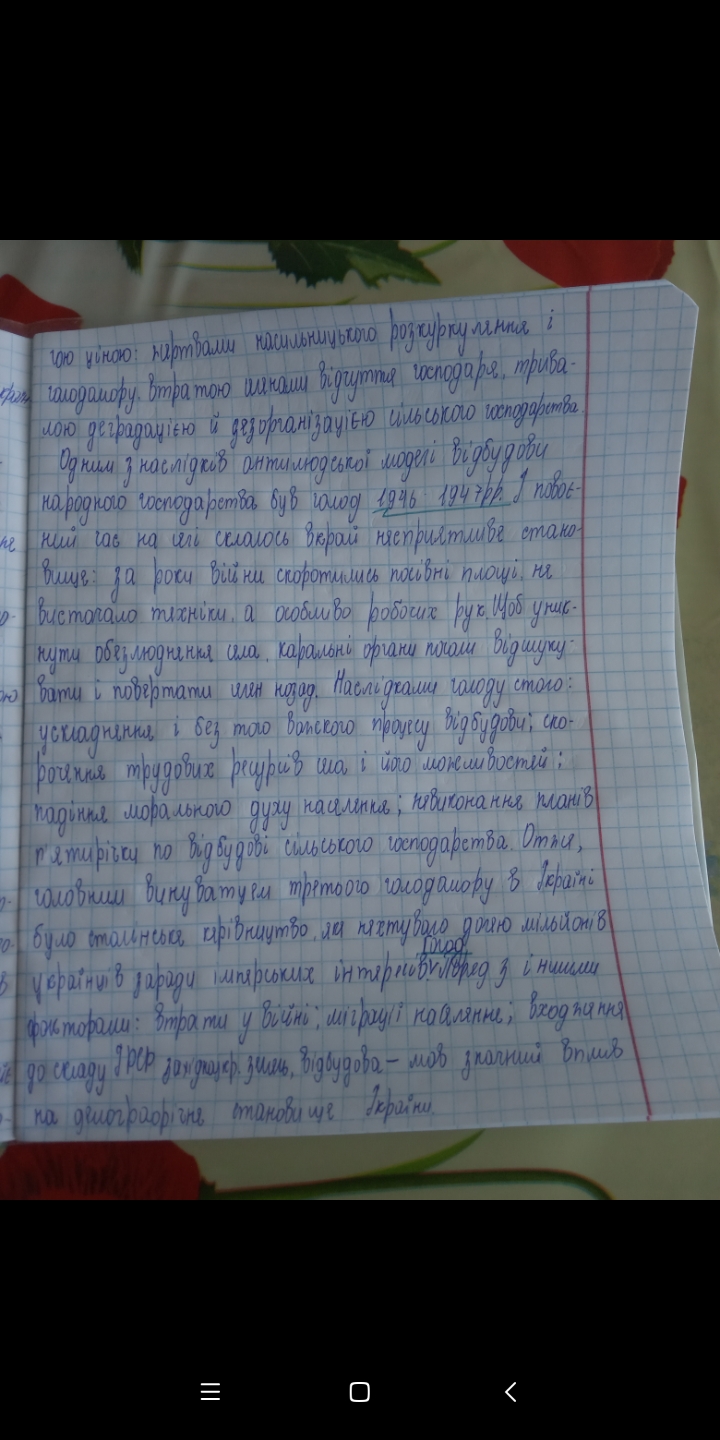 гою ціною: жертвами насильницького розкуркулення і
голодомору, втратою селянами відчуття господаря, трива-
лою деградацією й дезорганізацією сільського господарства.
Одним з наслідків антилюдської моделі відбудови
народного господарства був голод 1946-1947рр. У повоє-
нний час на селі склалось вкрай несприятливе стано-
вище: за роки війни скоротились посівні площі, не
вистачало техніки, а особливо робочих рук. Щоб уник-
нути обезлюднення села, каральні органи почали відшуку-
вати і повертати селян назад. Наслідками голоду стало:
ускладнення і без того важкого процесу відбудови; ско-
рочення трудових ресурсів села і його можливостей;
падіння морального духу населення; невиконання планів
п'ятирічки по відбудові сільського господарства. Отже,
головним винуватцем третього голодомору в Україні
було сталінське керівництво, яке нехтувало долею мільйонів
Голод
українців заради імперських інтересів. поряд з іншими
факторами: втрати у війні; міграції населення; входження
до складу УРСР західноукр. земель, відбудова – мав значний вплив
на демографічне становище України.